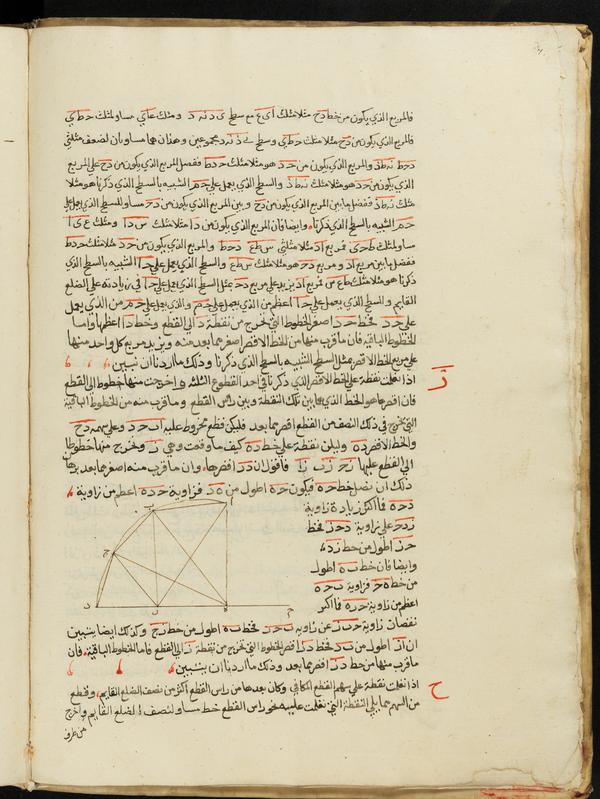 فالمربع الذي يكون من خط دح مثلا مثلث اى ع مع سطح ى د نه د ومثلث عاى مساو لمثلث حط ى
فالمربع الذي يكون من دح مثلا مثلث حط ى وسطح ى د نه د مجموعين وهذان هما مساويان لضعف مثلثي
دحط نه ط د والمربع الذي يكون من حد هو مثلا مثلث حدط ففضل المربع الذي يكون من دح على المربع
الذي يكون من حد هو مثلا مثلث نه ط د والسطح الذي يعمل على حم الشبيه بالسطح الذي ذكرنا هو مثلا
مثلث نه ط د ففضل ما بين المربع الذي يكون من دح وبين المربع الذي يكون من دح مساو للسطح الذي يعمل على
حم الشبيه بالسطح الذي ذكرنا وايضا فان المربع الذي يكون من دا مثلا مثلث س دا ومثلث ع ى ا
مساو لمثلث ط حى فمربع اد مثلا مثلثي س ط ع دحط والمربع الذي يكون من حد مثلا مثلث حدط
ففضل ما بين مربع اد ومربع دح هو مثلا مثلث س ط ع والسطح الذي يعمل على حا الشبيه بالسطح الذي
ذكرنا هو مثلا مثلث ط س ع فمربع اد يزيد على مربع دح بمثل السطح الذي يعمل على حا في زيادته على الضلع
القايم والسطح الذي يعمل على حا اعظم من الذي يعمل على حم والذي يعمل على حم من الذي يعمل
على حد فخط حد اصغر الخطوط التي تخرج من نقطة د الى القطع وخط دا اعظمها واما
الخطوط الباقية فان ما قرب منها من الخط الاقصر اصغر مما بعد منه ويزيد مربع كل واحد منها
على مربع الخط الاقصر بمثل السطح الشبيه بالسطح الذي ذكرنا وذلك ما اردنا ان نبين
ز
اذا تعلمت نقطة على الخط الاقصر الذي ذكرنا في احد القطوع الثلثة واخرجت منها خطوط الى القطع
فان اقصرها هو الخط الذي بين تلك النقطة وبين راس القطع وما قرب منه من الخطوط الباقية
التي تخرج في ذلك النصف من القطع اقصر مما بعد فليكن قطع مخروط عليه اب حد وعلى سهمه دح
والخط الاقصر ده وليكن نقطة على خط ده كيف ما وقعت وهي ز ونخرج منها خطوطا
الى القطع عليها زح زب زا فاقول ان زد اقصرها وان ما قرب منه اصغر مما بعد برهان
ذلك ان نصل خط حه فيكون حه اطول من ه د فزاوية حده اعظم من زاوية
دحه فاكثر زيادة زاوية
زدح على زاوية دحز فخط
حز اطول من خط زد
وايضا فان خط به اطول
من خط هح فزاوية بحه
اعظم من زاوية حبه فاكثر
نقصان زاوية حبز عن زاوية بحز فخط به اطول من خط زح وكذلك ايضا يتبين
ان از اطول من زب فخط دز اقصر الخطوط التي تخرج من نقطة ز الى القطع فاما الخطوط الباقية فان
ما قرب منها من خط دز اقصر مما بعد وذلك ما اردنا ان نبين
ح
اذا تعلمت نقطة على سهم القطع المكافي وكان بعدها من راس القطع اكثر من نصف الضلع القايم وقطع
من السهم مما يلي النقطة التي تعلمت عليه نحو راس القطع خط مساو لنصف الضلع القايم واخرج
من طرف